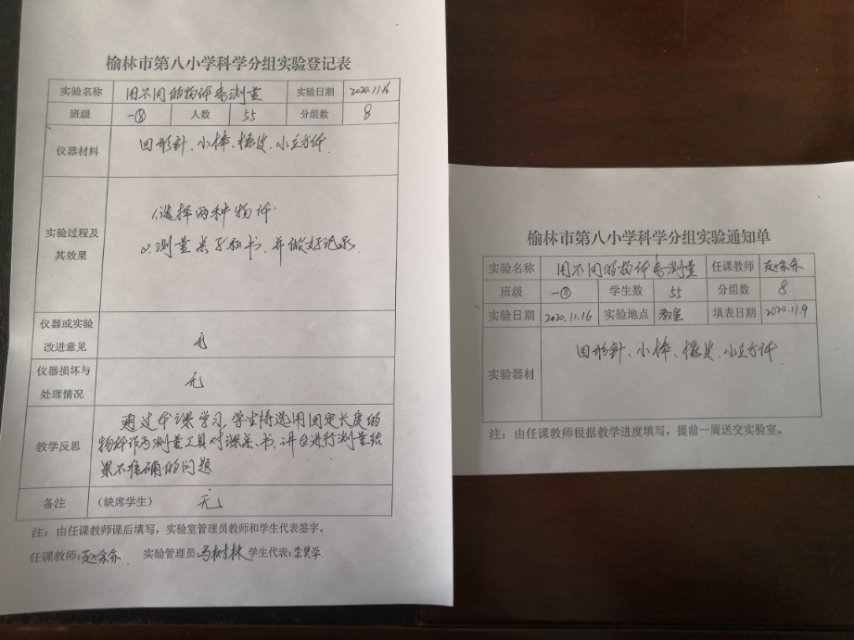 榆林市第八小学科学分组实验登记表
实验名称 用不同的物体来测量 实验日期 2020.11.16
班级 一③ 人数 55 分组数 8
仪器材料 回形针、小棒、橡皮、小立方体
实验过程及其效果
1.选择两种物体
2.测量桌子和书,并做好记录
仪器或实验改进意见 无
仪器损坏与处理情况 无
教学反思
通过本课学习,学生将选用固定长度的
物体作为测量工具对课桌、书、讲台进行测量结
果不准确的问题
备注 (缺席学生) 无
注:由任课教师课后填写,实验室管理员教师和学生代表签字。
任课教师: 实验管理员:马树林 学生代表:
榆林市第八小学科学分组实验通知单
实验名称 用不同的物体来测量 任课教师
班级 一③ 学生数 55 分组数 8
实验日期 2020.11.16 实验地点 教室 填表日期 2020.11.9
实验器材 回形针、小棒、橡皮、小立方体
注:由任课教师根据教学进度填写,提前一周送交实验室。